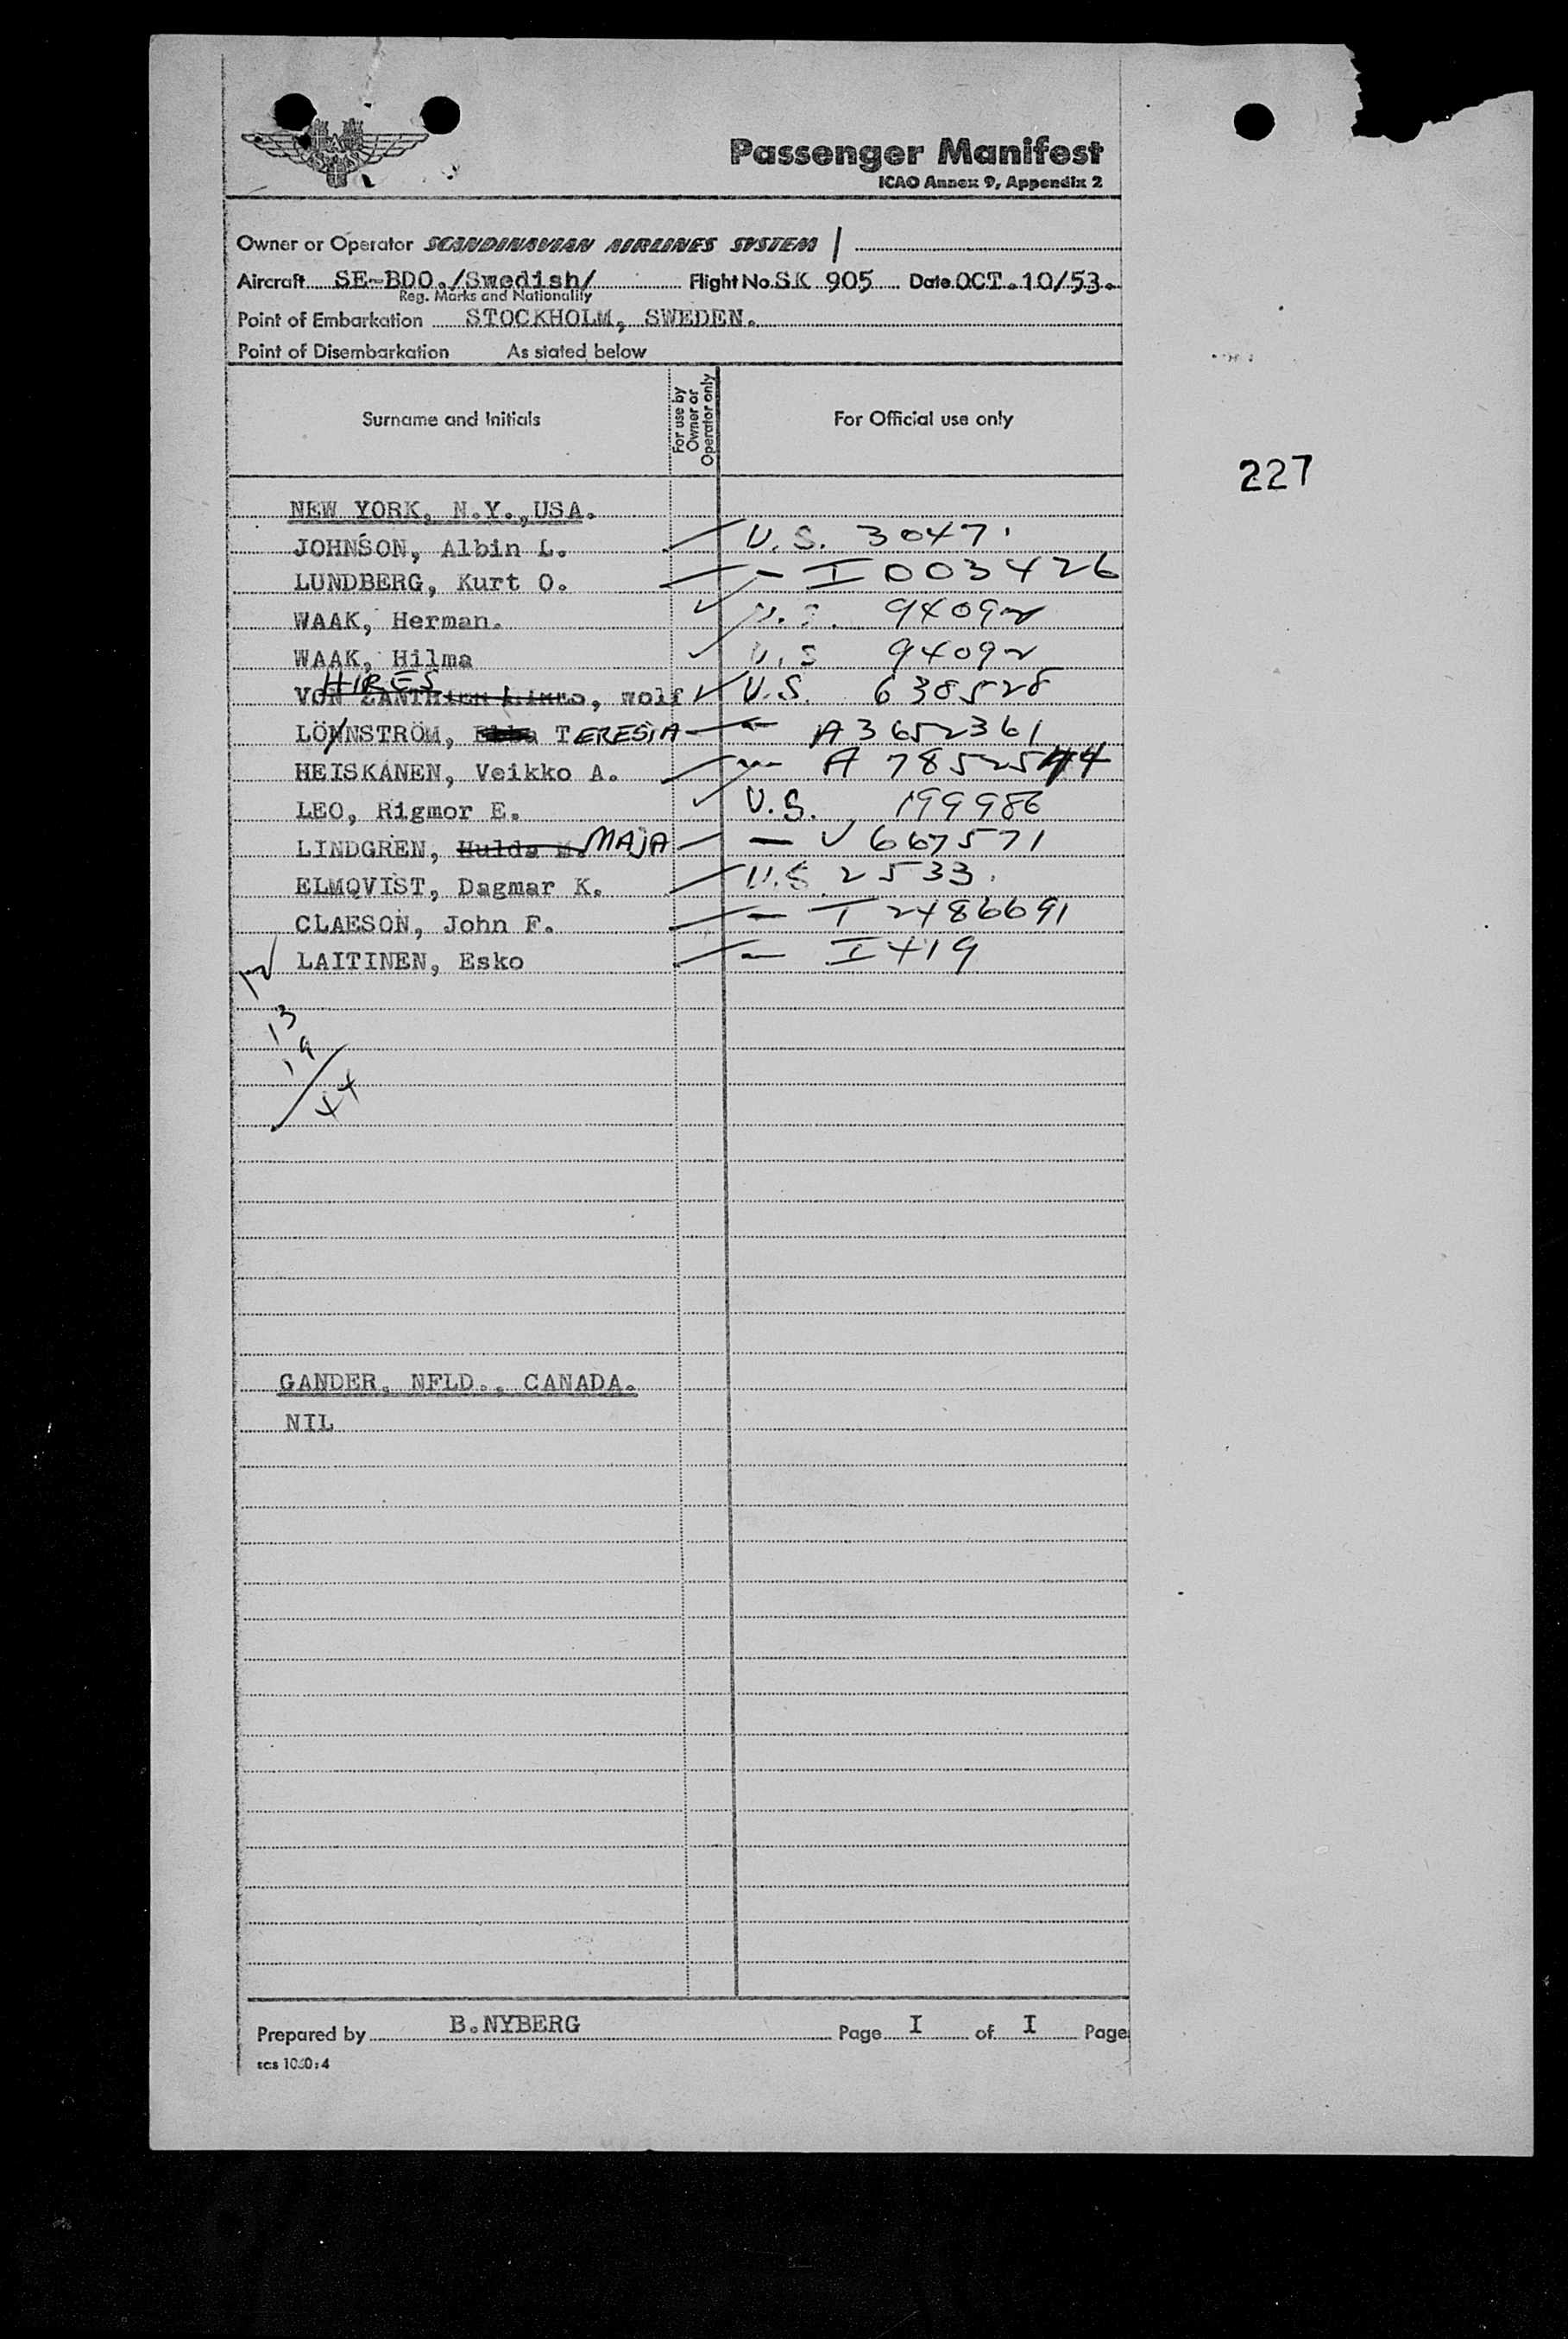 Passenger Manifest
ICAO Annex 9, Appendix 2
Owner or Operator SCANDINAVIAN AIRLINES SYSTEM
Aircraft SE-BDO./Swedish/ Flight No. SK 905 Date OCT.10/53.
Reg. Marks and Nationality
Point of Embarkation STOCKHOLM, SWEDEN.
Point of Disembarkation As stated below
Surname and Initials For use by Owner or Operator only For Official use only
227
NEW YORK, N.Y.,USA.
JOHNSON, Albin L. U.S. 3047
LUNDBERG, Kurt O. — I 0003426
WAAK, Herman. U.S. 94092
WAAK, Hilma U.S 94092
HIRES
VON ZANTH, Wolf U.S. 638528
LÖNNSTRÖM, TERESIA — A3652361
HEISKANEN, Veikko A. — A 7852544
LEO, Rigmor E. U.S. 199986
LINDGREN, Hulda M. MAJA — V 667571
ELMQVIST, Dagmar K. U.S. 2533.
CLAESON, John F. — I 2486691
LAITINEN, Esko — I 419
12
13
19
44
GANDER, NFLD., CANADA.
NIL
Prepared by B.NYBERG Page I of I Page